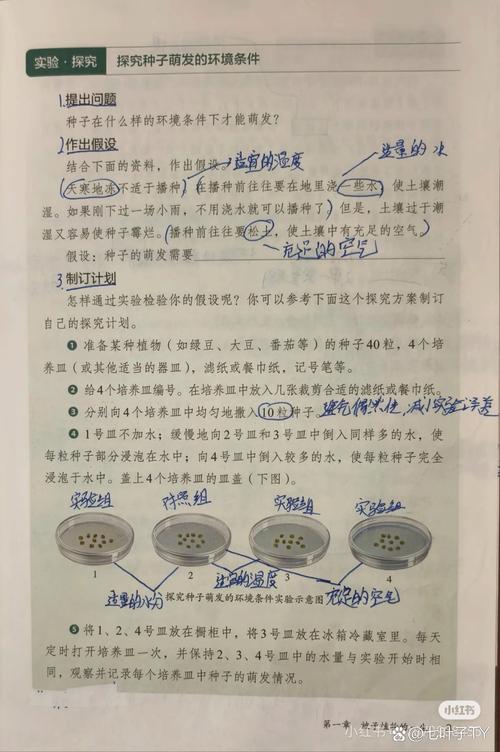 实验·探究 探究种子萌发的环境条件
1.提出问题
种子在什么样的环境条件下才能萌发？
2.作出假设 适量的水
结合下面的资料，作出假设。适宜的温度
天寒地冻不适于播种；在播种前往往要在地里浇一些水，使土壤潮
湿。如果刚下过一场小雨，不用浇水就可以播种了；但是，土壤过于潮
湿又容易使种子霉烂。播种前往往要松土，使土壤中有充足的空气。
假设：种子的萌发需要 充足的空气
3.制订计划
怎样通过实验检验你的假设呢？你可以参考下面这个探究方案制订
自己的探究计划。
❶ 准备某种植物（如绿豆、大豆、番茄等）的种子40粒，4个培
养皿（或其他适当的器皿），滤纸或餐巾纸，记号笔等。
❷ 给4个培养皿编号。在培养皿中放入几张裁剪合适的滤纸或餐巾纸。
❸ 分别向4个培养皿中均匀地撒入10粒种子。避免偶然性，减小实验误差
❹ 1号皿不加水；缓慢地向2号皿和3号皿中倒入同样多的水，使
每粒种子部分浸泡在水中；向4号皿中倒入较多的水，使每粒种子完全
浸泡于水中。盖上4个培养皿的皿盖（下图）。
实验组 对照组 实验组 实验组
1 2 3 4
适宜的温度
适量的水分 探究种子萌发的环境条件实验示意图 充足的空气
❺ 将1、2、4号皿放在橱柜中，将3号皿放在冰箱冷藏室里。每天
定时打开培养皿一次，并保持2、3、4号皿中的水量与实验开始时相
同，观察并记录每个培养皿中种子的萌发情况。
小红书
第一章
七叶子TY